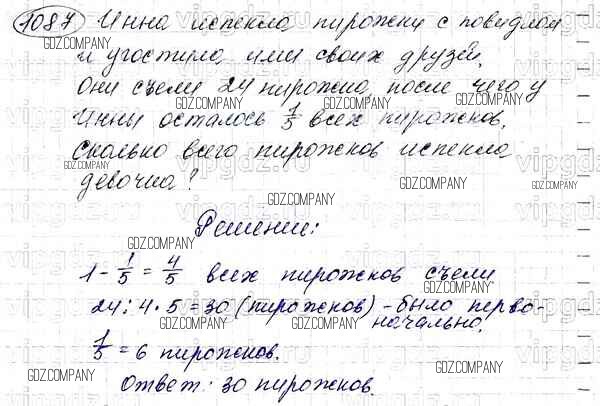 1087 Инна испекла пирожки с повидлом
и угостила ими своих друзей.
Они съели 24 пирожка, после чего у
Инны осталось 1/5 всех пирожков.
Сколько всего пирожков испекла
девочка?
Решение:
1 - 1/5 = 4/5 всех пирожков съели
24 : 4 · 5 = 30 (пирожков) - было перво-
начально.
1/5 = 6 пирожков.
Ответ: 30 пирожков.
GDZ.COMPANY
vipgdz.ru